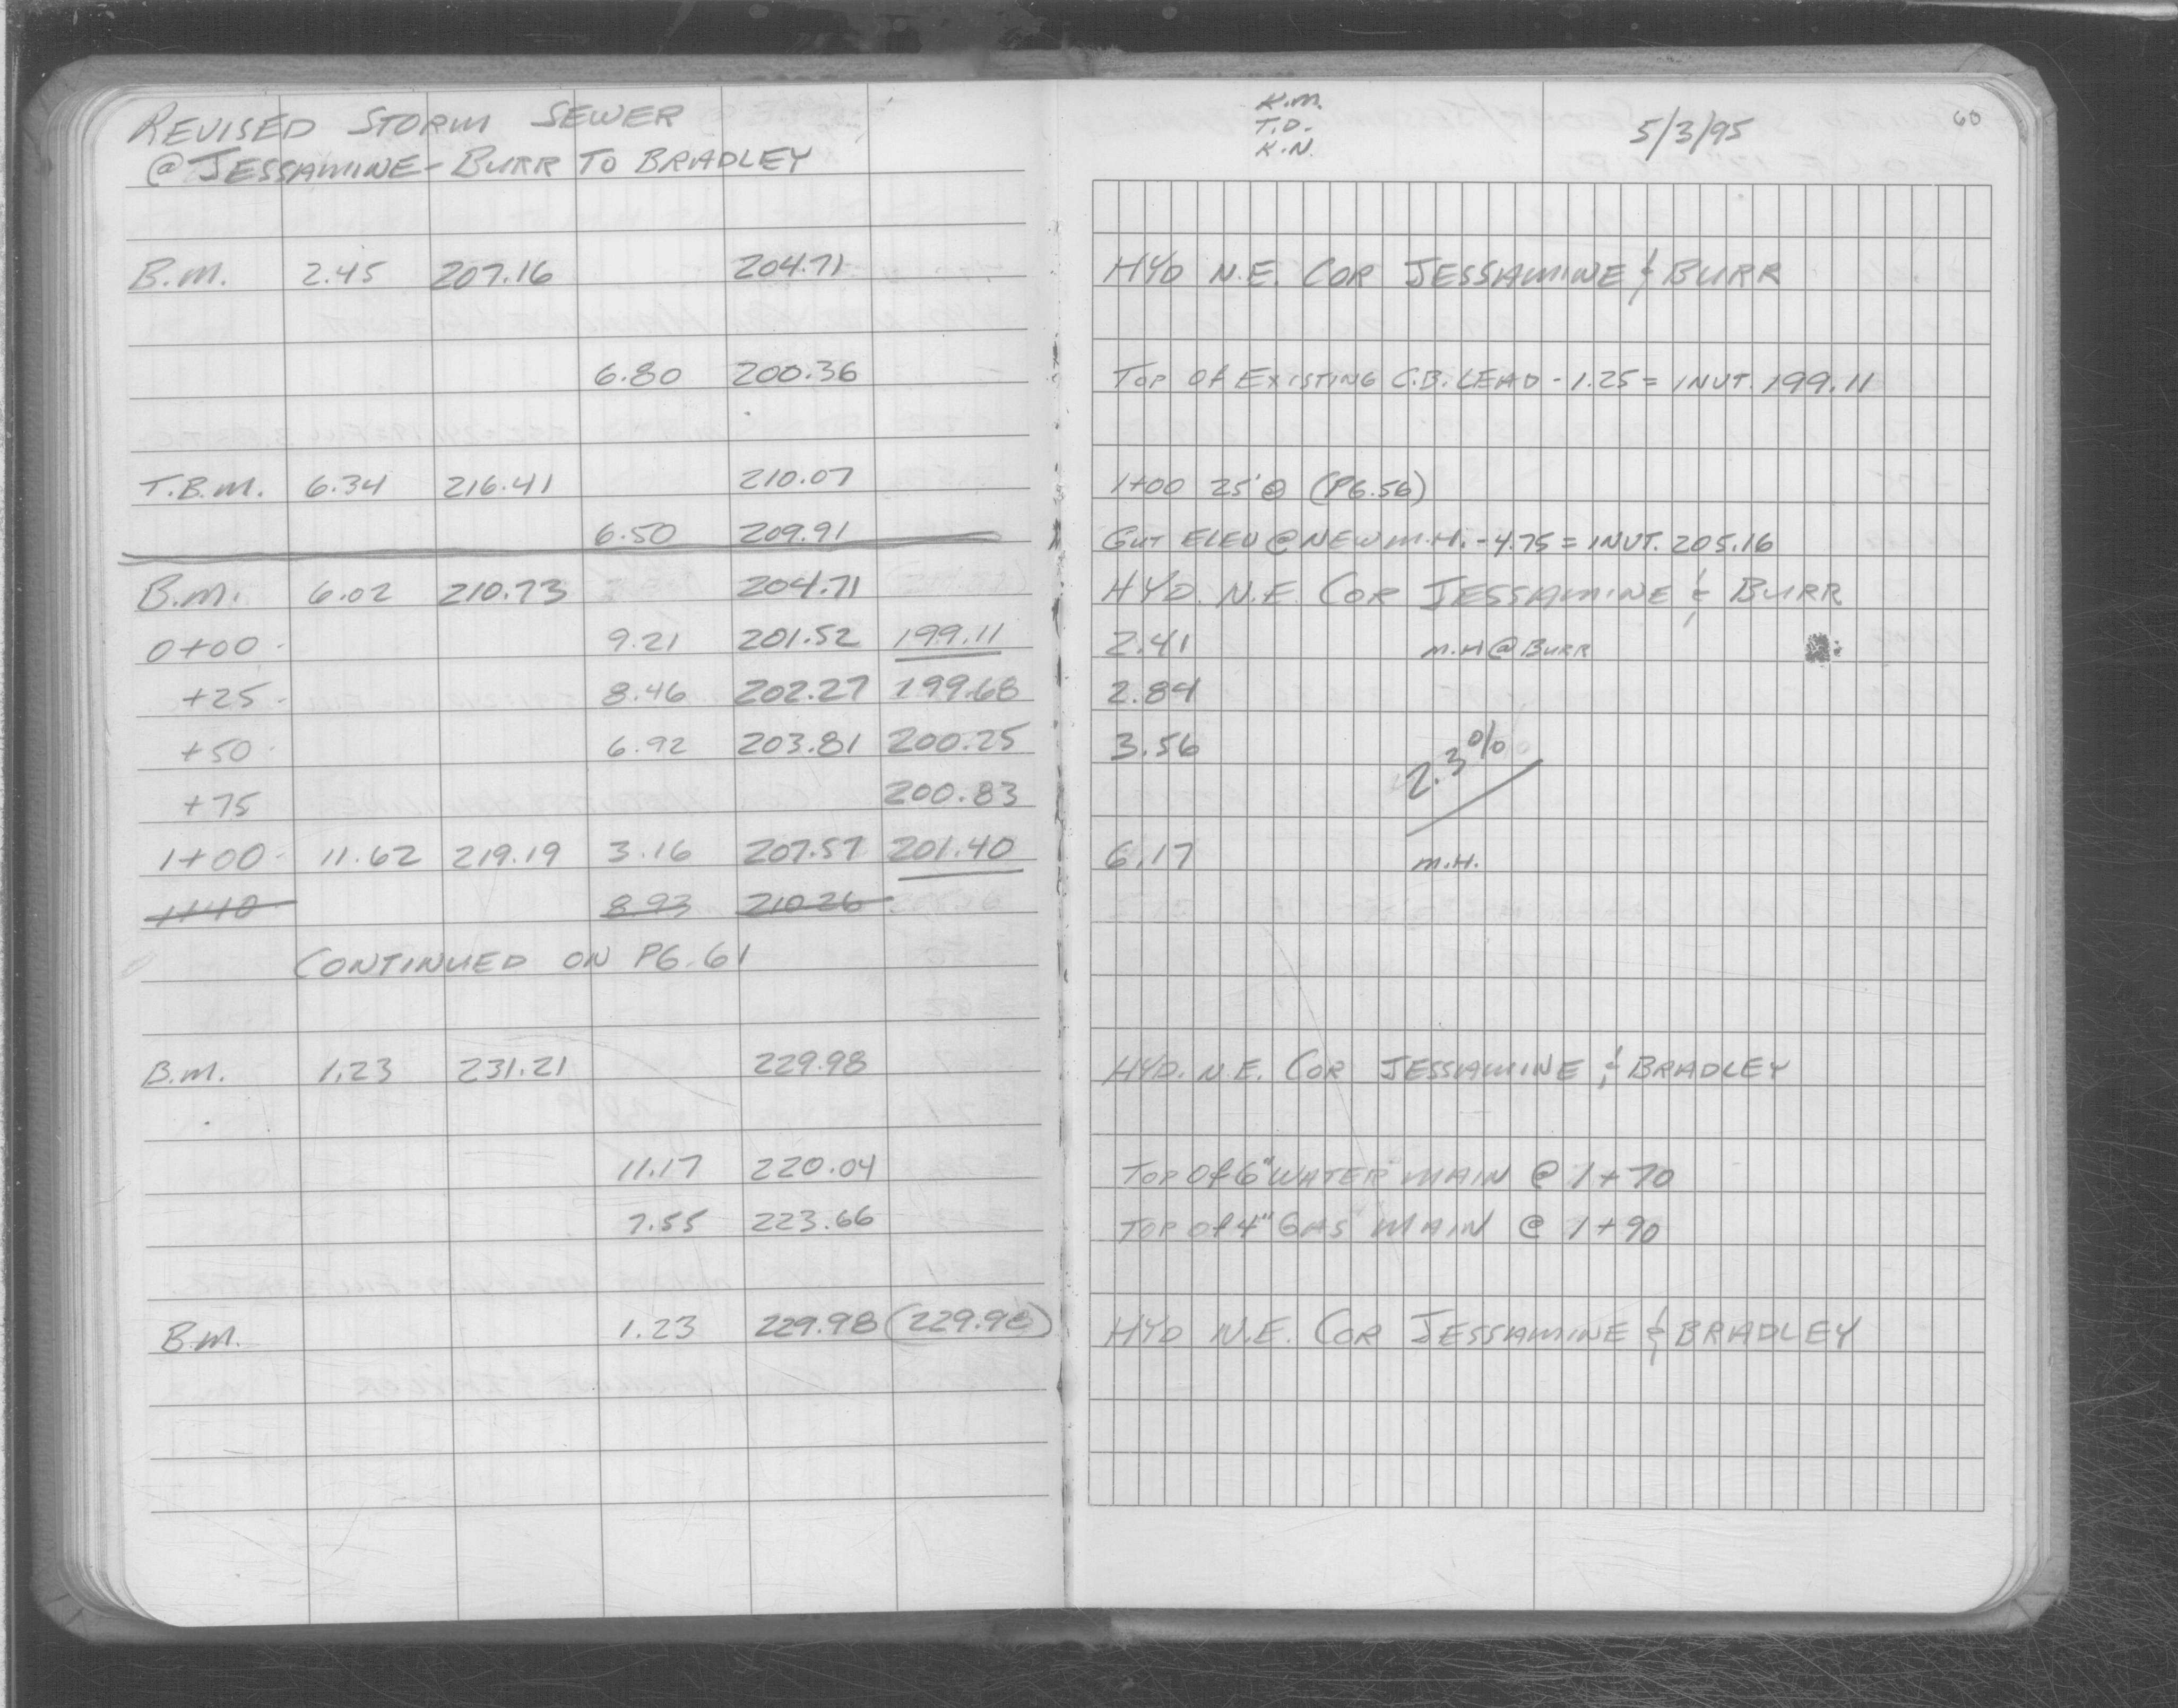 REVISED STORM SEWER
@ JESSAMINE - BURR TO BRADLEY
K.M.
T.D.
K.N.
5/3/95
60
B.M. 2.45 207.16 204.71 HYD N.E. COR JESSAMINE & BURR
6.80 200.36 TOP OF EXISTING C.B. LEAD - 1.25 = INVT. 199.11
T.B.M. 6.34 216.41 210.07 1+00 25' (PG.56)
6.50 209.91 GUT ELEV @ NEW M.H. - 4.75 = INVT. 205.16
B.M. 6.02 210.73 204.71 HYD. N.E. COR JESSAMINE & BURR
0+00 9.21 201.52 199.11 2.41 M.H @ BURR
+25 8.46 202.27 199.68 2.84
+50 6.92 203.81 200.25 3.56 2.3%
+75 200.83
1+00 11.62 219.19 3.16 207.57 201.40 6.17 M.H.
1+40 8.93 210.26
CONTINUED ON PG. 61
B.M. 1.23 231.21 229.98 HYD. N.E. COR JESSAMINE & BRADLEY
11.17 220.04 TOP OF 6" WATER MAIN @ 1+70
7.55 223.66 TOP OF 4" GAS MAIN @ 1+90
B.M. 1.23 229.98 (229.98) HYD N.E. COR JESSAMINE & BRADLEY